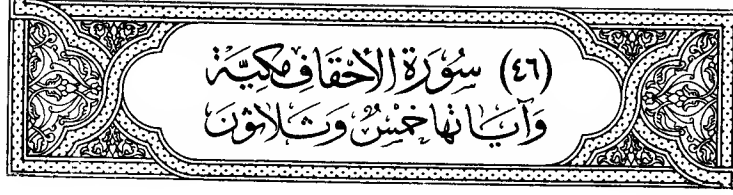 (٤٦) سُورَة الأحْقَافِ مَكِيَّة
وَآيَاتُهَا خَمْسٌ وَثَلَاثُونَ